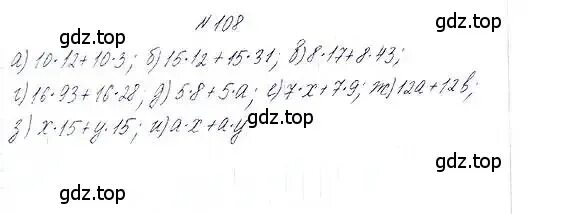 №108
а) 10·12+10·3; б) 15·12+15·31; в) 8·17+8·43;
г) 16·93+16·28; д) 5·8+5·a; е) 7·x+7·9; ж) 12a+12b;
з) x·15+y·15; и) a·x+a·y
gdz.top
gdz.top
gdz.top
gdz.top
gdz.top